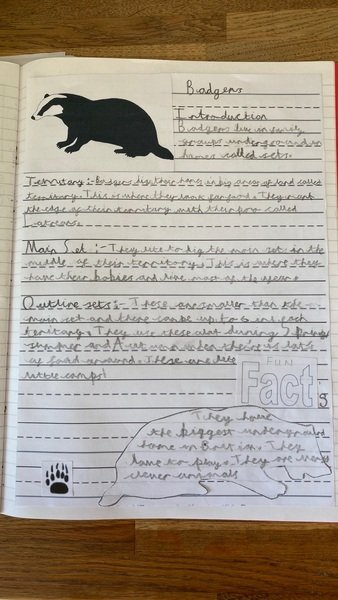 Badgers
Introduction
Badgers live in family
groups underground in
homes called sets.
Territory :- Badgers dig their homes in big areas of land called
territory. This is where they look for food. They mark
the edge of their territory with their poo called
Latrens.
Main Set :- They like to dig the main sets in the
middle of their territory. This is where they
have their babies and live most of the year.
Outline sets :- These are smaller than the
main set and there can be up to 6 in each
territory. They use these alot durning Spring
summer and Autumn when there is lots
of food around. These are like
little camps!
FUN
Facts
They have
the biggest underground
home in Britain. They
love to play. They are very
clever animals